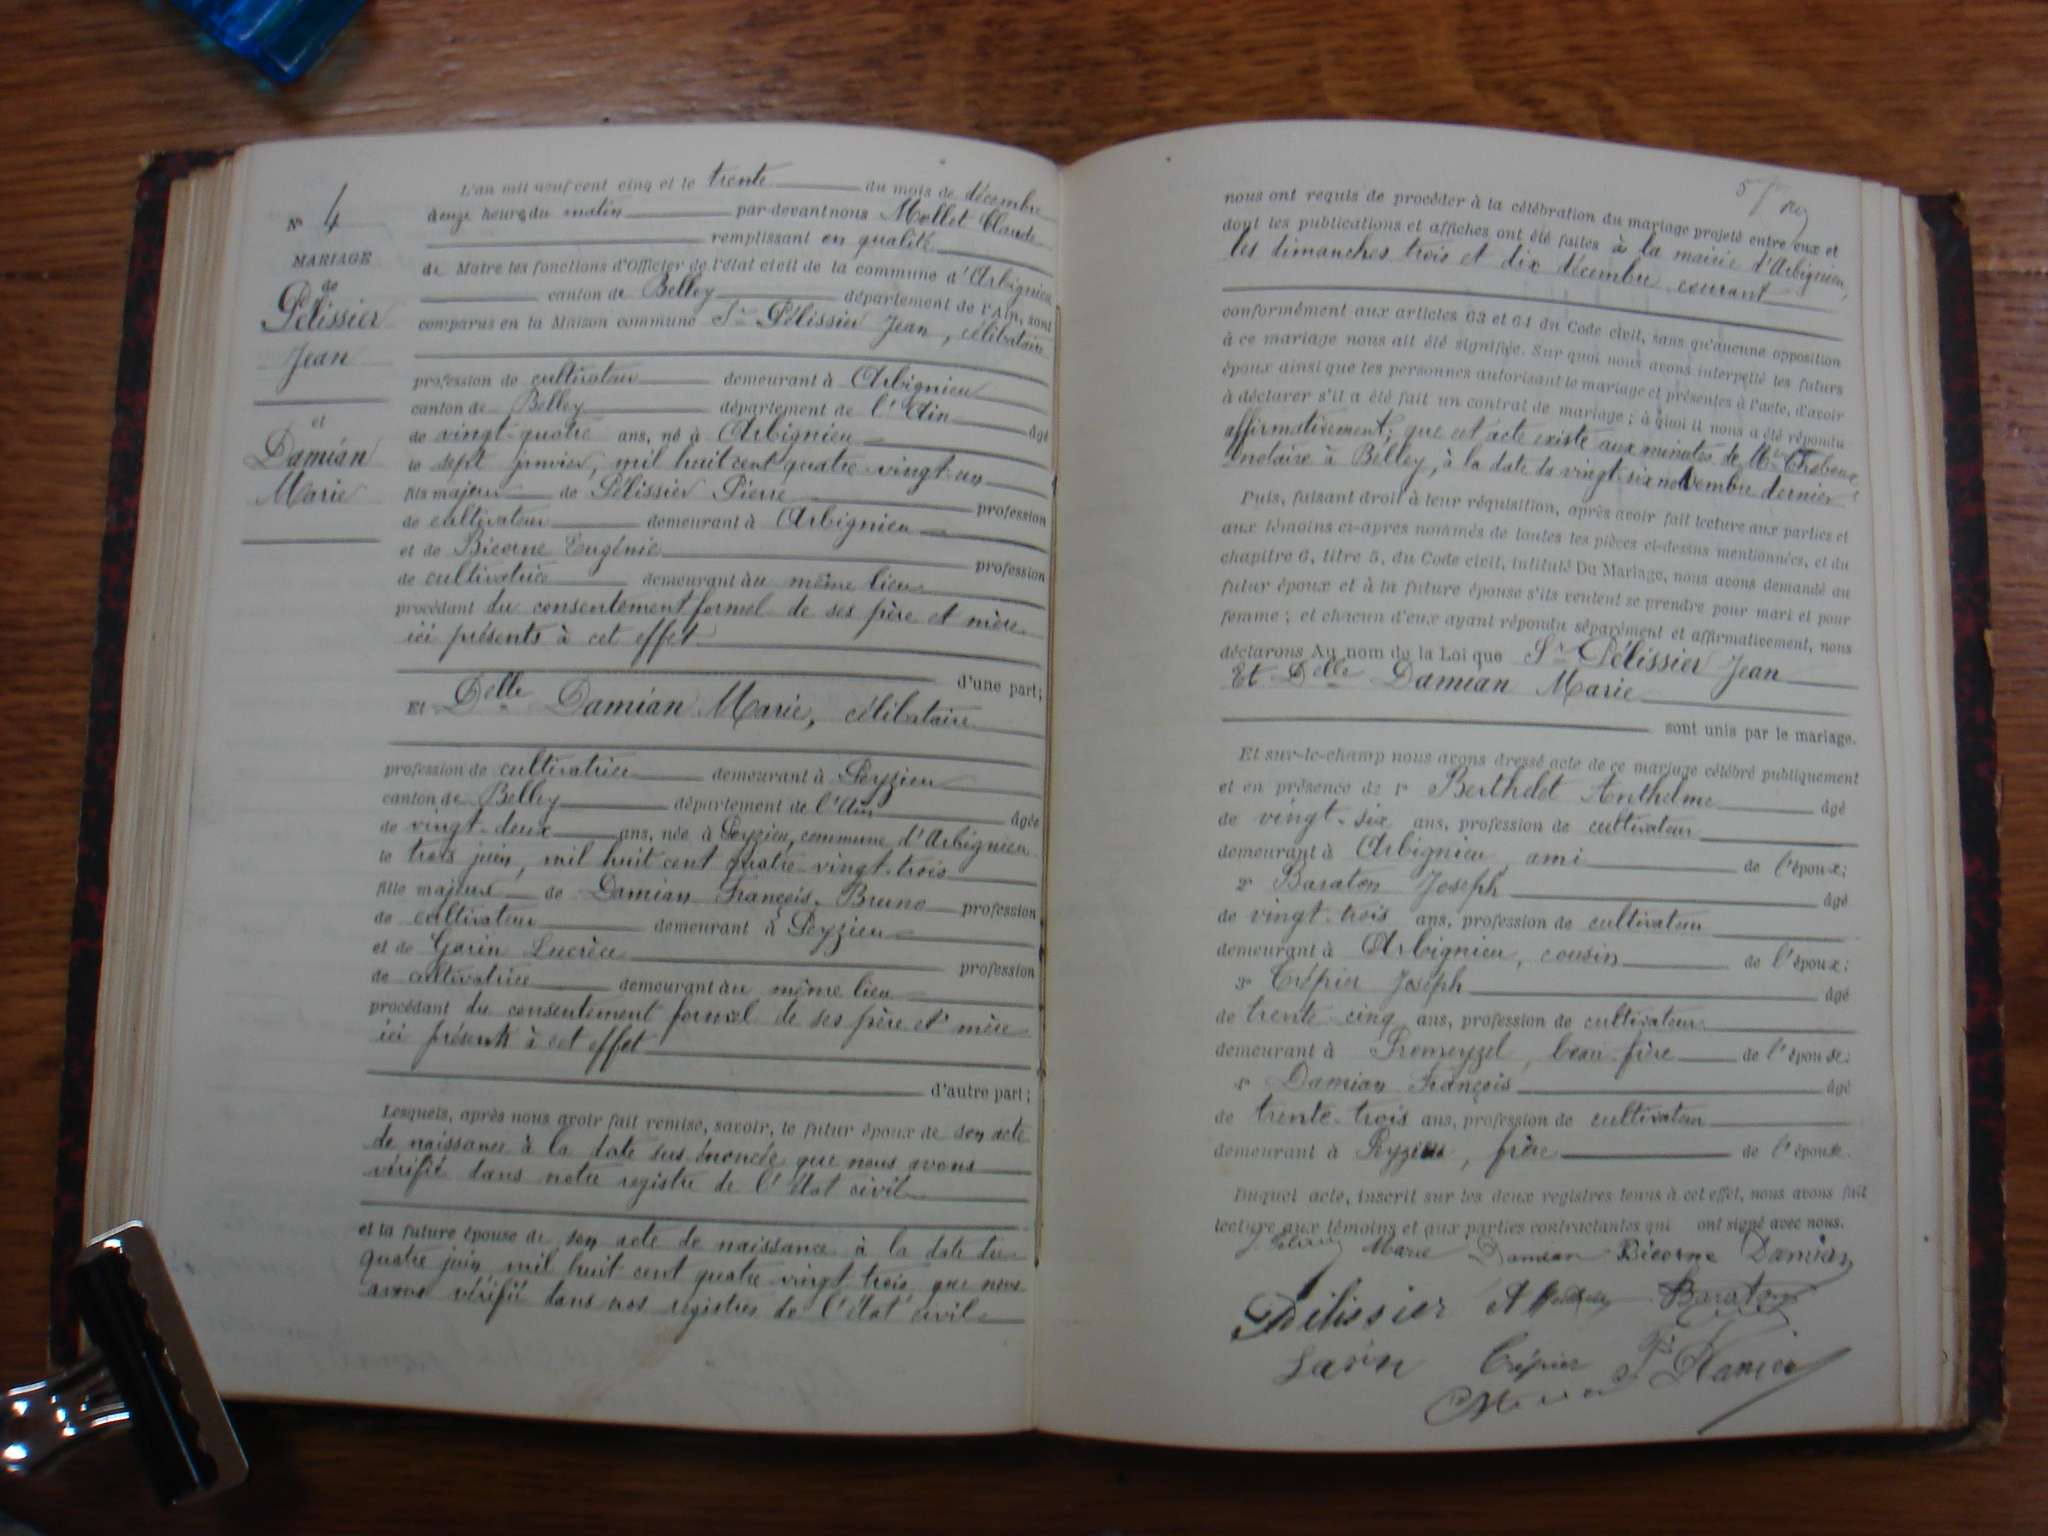 N° 4
MARIAGE
de
Pélissier
Jean
et
Damian
Marie
L'an mil neuf cent cinq et le trente du mois de décembre
à onze heures du matin par-devant nous Mollet Claude
remplissant en qualité
de Maire les fonctions d'Officier de l'état civil de la commune d'Arbignieu
canton de Belley département de l'Ain, sont
comparus en la Maison commune Sr Pélissier Jean, célibataire
profession de cultivateur demeurant à Arbignieu
canton de Belley département de l'Ain âgé
de vingt-quatre ans, né à Arbignieu
le sept janvier, mil huit cent quatre-vingt-un
fils majeur de Pélissier Pierre profession
de cultivateur demeurant à Arbignieu
et de Bicorne Eugénie profession
de cultivatrice demeurant au même lieu
procédant du consentement formel de ses père et mère
ici présents à cet effet
d'une part;
Et Delle Damian Marie, célibataire
profession de cultivatrice demeurant à Peyzieu
canton de Belley département de l'Ain âgée
de vingt-deux ans, née à Peyzieu, commune d'Arbignieu
le trois juin, mil huit cent quatre-vingt-trois
fille majeure de Damian François-Bruno profession
de cultivateur demeurant à Peyzieu
et de Garin Lucrèce profession
de cultivatrice demeurant au même lieu
procédant du consentement formel de ses père et mère
ici présents à cet effet
d'autre part;
Lesquels, après nous avoir fait remise, savoir, le futur époux de son acte
de naissance à la date sus énoncée que nous avons
vérifié dans notre registre de l'Etat civil
et la future épouse de son acte de naissance à la date du
quatre juin, mil huit cent quatre-vingt trois, que nous
avons vérifié dans nos registres de l'Etat civil
nous ont requis de procéder à la célébration du mariage projeté entre eux et
dont les publications et affiches ont été faites à la mairie d'Arbignieu,
les dimanches trois et dix décembre courant
conformément aux articles 63 et 64 du Code civil, sans qu'aucune opposition
à ce mariage nous ait été signifiée. Sur quoi nous avons interpellé les futurs
époux ainsi que les personnes autorisant le mariage et présentes à l'acte, d'avoir
à déclarer s'il a été fait un contrat de mariage; à quoi il nous a été répondu
affirmativement; que cet acte existe aux minutes de Me
notaire à Belley, à la date du vingt-six novembre dernier
Puis, faisant droit à leur réquisition, après avoir fait lecture aux parties et
aux témoins ci-après nommés de toutes les pièces ci-dessus mentionnées, et du
chapitre 6, titre 5, du Code civil, intitulé Du Mariage, nous avons demandé au
futur époux et à la future épouse s'ils veulent se prendre pour mari et pour
femme; et chacun d'eux ayant répondu séparément et affirmativement, nous
déclarons Au nom de la Loi que Sr Pélissier Jean
Et Delle Damian Marie
sont unis par le mariage.
Et sur-le-champ nous avons dressé acte de ce mariage célébré publiquement
et en présence de 1° Berthelot Anthelme âgé
de vingt-six ans, profession de cultivateur
demeurant à Arbignieu, ami de l'époux;
2° Baraton Joseph âgé
de vingt-trois ans, profession de cultivateur
demeurant à Arbignieu, cousin de l'époux;
3° Crépier Joseph âgé
de trente-cinq ans, profession de cultivateur
demeurant à Premeyzel, beau-frère de l'épouse;
4° Damian François âgé
de trente-trois ans, profession de cultivateur
demeurant à Peyzieu, frère de l'épouse.
Duquel acte, inscrit sur les deux registres tenus à cet effet, nous avons fait
lecture aux témoins et aux parties contractantes qui ont signé avec nous.
Marie Damian Bicorne Damian
Pélissier Baraton
Garin Crépier